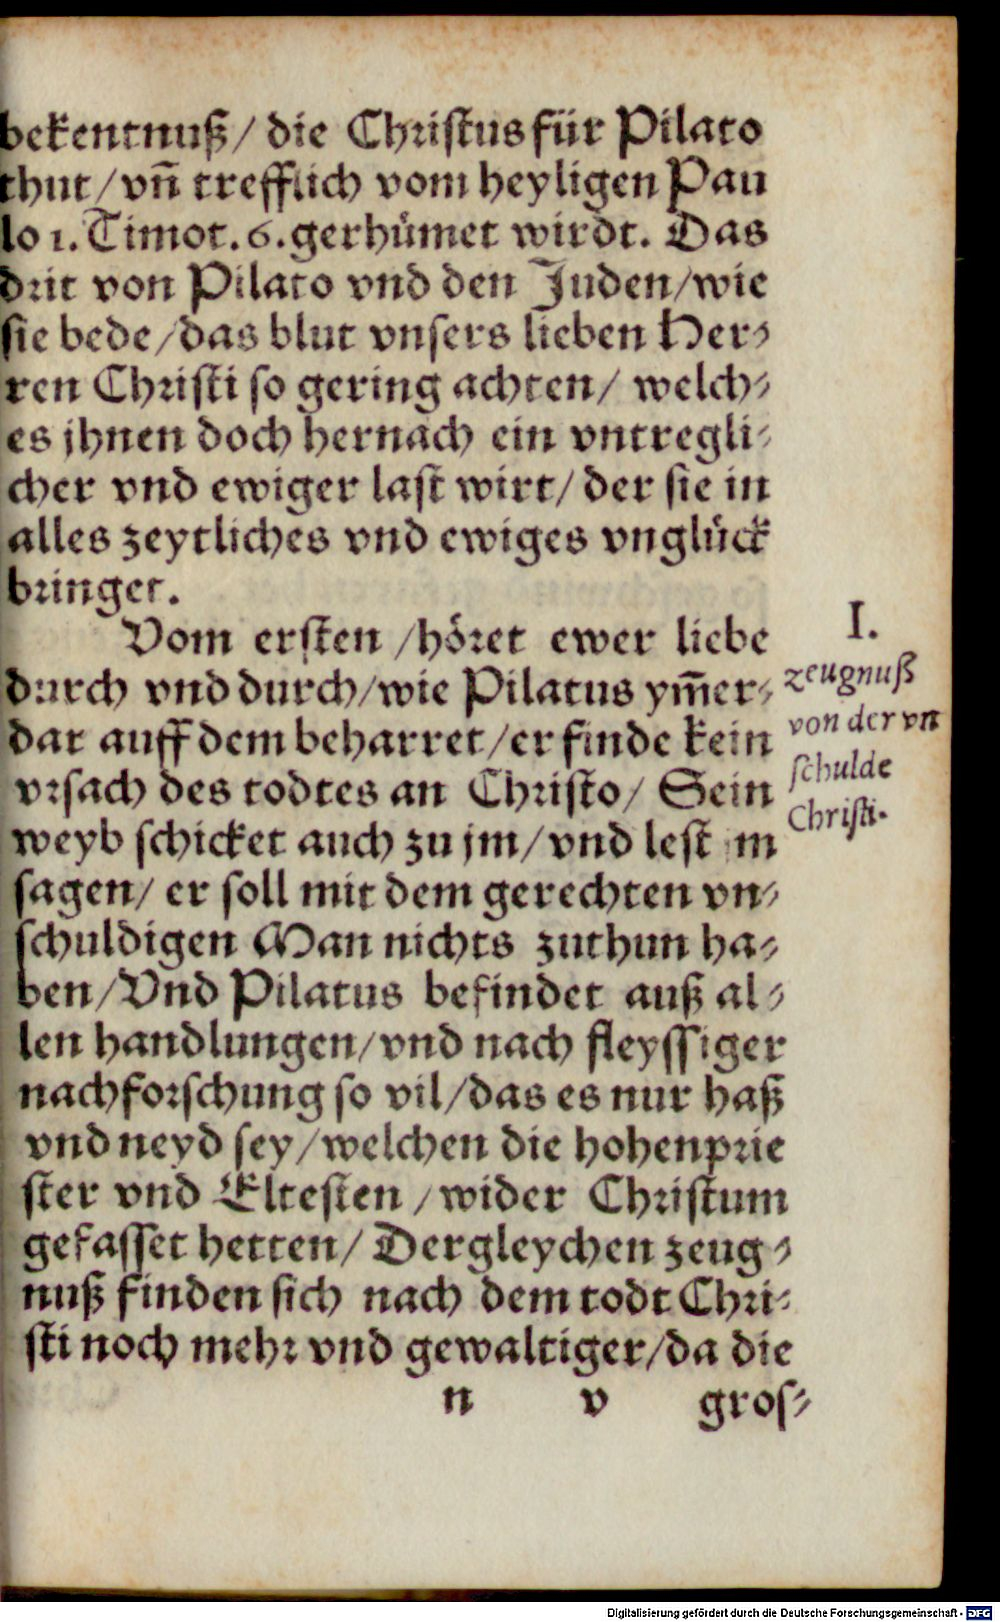 bekentnuß/ die Christus für Pilato
thut/vñ trefflich vom heyligen Pau
lo 1. Timot. 6. gerhümet wirdt. Das
drit von Pilato vnd den Juden/wie
sie bede/das blut vnsers lieben Her⸗
ren Christi so gering achten/ welch⸗
es jhnen doch hernach ein vntregli⸗
cher vnd ewiger last wirt/ der sie in
alles zeytliches vnd ewiges vnglück
bringet.
Vom ersten /höret ewer liebe
durch vnd durch/wie Pilatus ym̃er⸗
dar auff dem beharret/er finde kein
vrsach des todtes an Christo/ Sein
weyb schicket auch zu jm/vnd lest jm
sagen/ er soll mit dem gerechten vn⸗
schuldigen Man nichts zuthun ha⸗
ben/Vnd Pilatus befindet auß al⸗
len handlungen/vnd nach fleyssiger
nachforschung so vil/das es nur haß
vnd neyd sey/welchen die hohenprie
ster vnd Eltesten /wider Christum
gefasset hetten/ Dergleychen zeug⸗
nuß finden sich nach dem todt Chri⸗
sti noch mehr vnd gewaltiger/da die
n v gros⸗
I.
zeugnuß
von der vn
schulde
Christi.
Digitalisierung gefördert durch die Deutsche Forschungsgemeinschaft - DFG